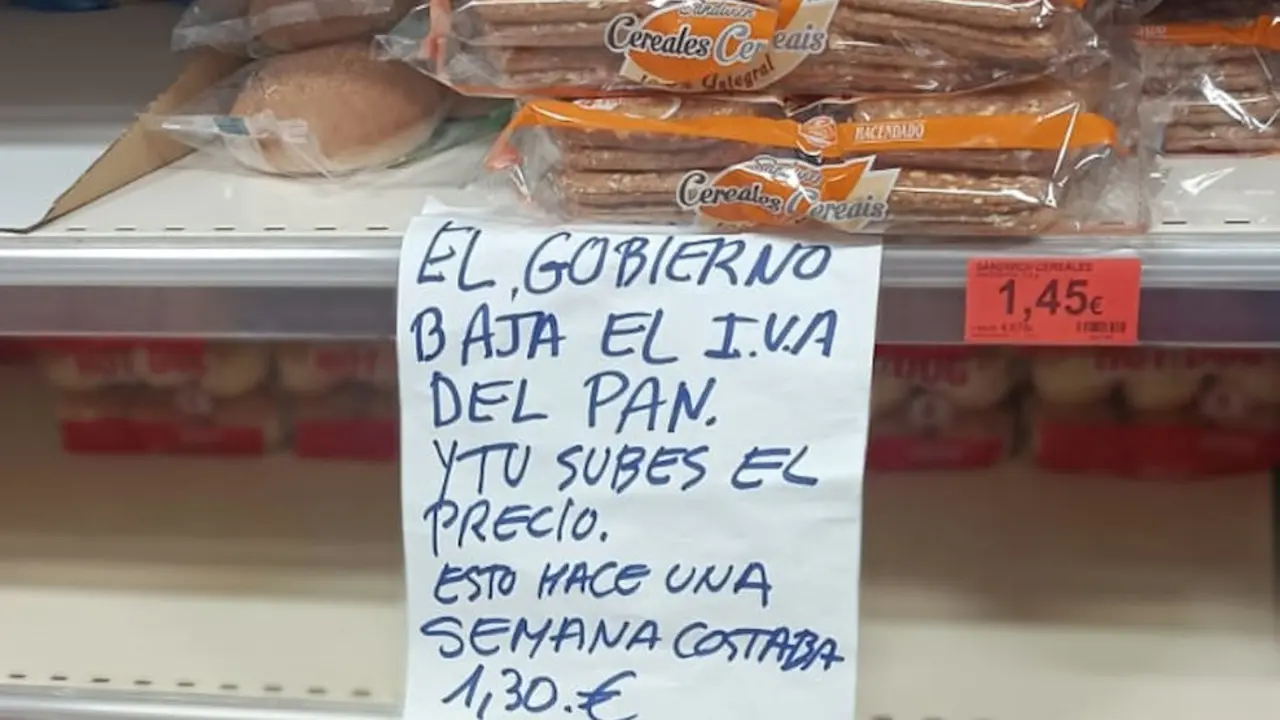 Sandwich
Cereales Cereais
Integral
HACENDADO
Cereales Cereais
EL GOBIERNO
BAJA EL I.V.A
DEL PAN.
Y TU SUBES EL
PRECIO.
ESTO HACE UNA
SEMANA COSTABA
1,30.€
SANDWICH CEREALES
1,45€